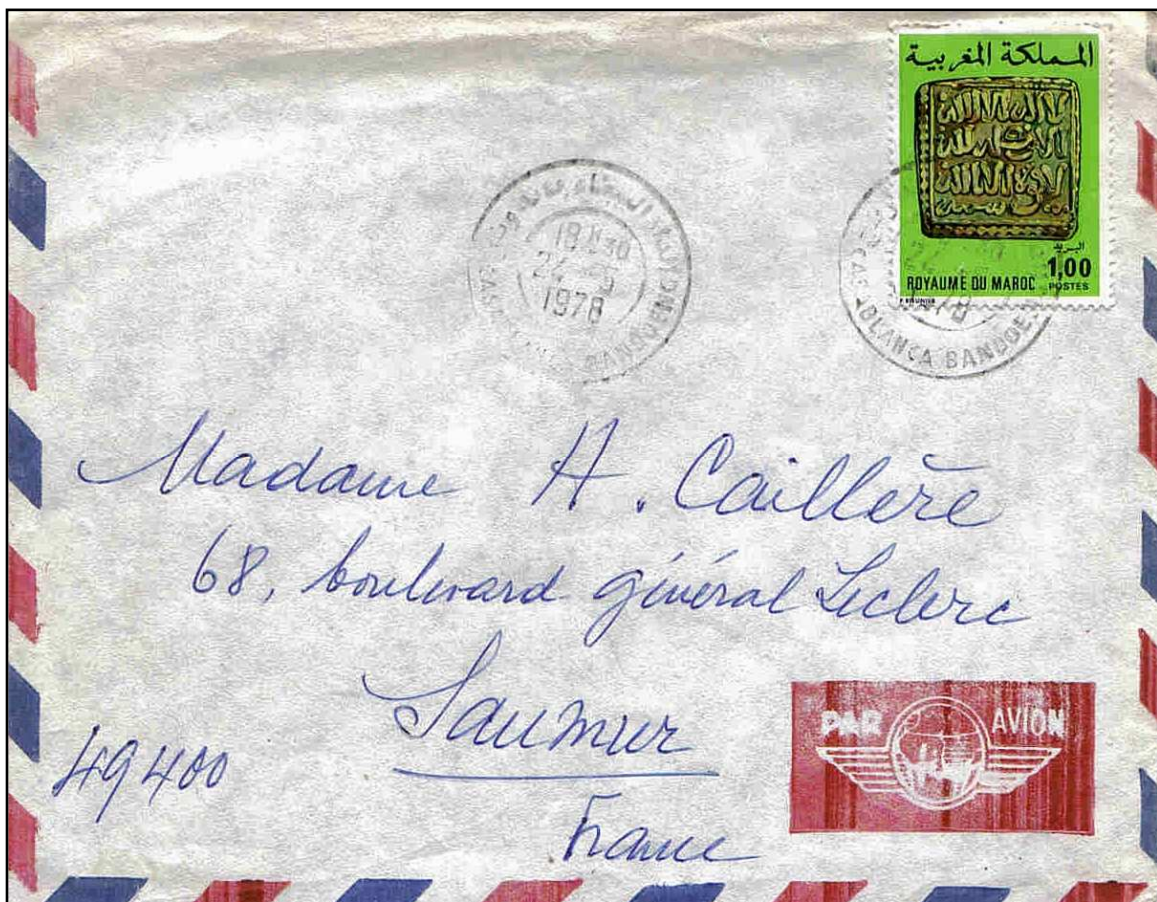 المملكة المغربية
البريد
1,00
ROYAUME DU MAROC POSTES
18H30
24 - 9
1978
CASABLANCA BANDOENG
1978
CASABLANCA BANDOENG
Madame A. Caillère
68, boulevard général Leclerc
Saumur
49400
France
PAR AVION